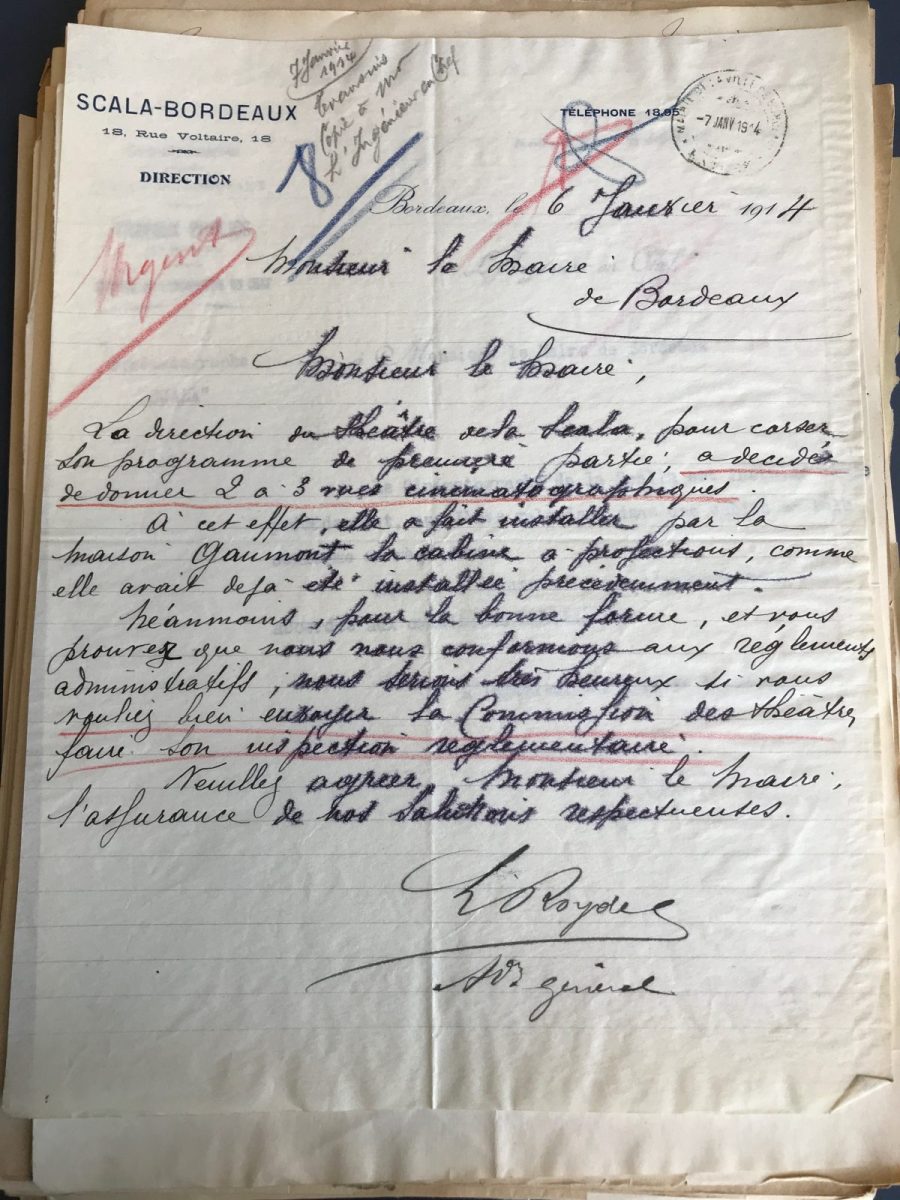 7 Janvier
1914
Transmis
Copie à Mr
L'Ingénieur en Chef
SCALA-BORDEAUX
18, Rue Voltaire, 18
DIRECTION
TÉLÉPHONE 18.95
MAIRIE DE LA VILLE DE BORDEAUX
-7 JANV 1914
8
Urgent
Bordeaux, le 6 Janvier 1914
Monsieur le Maire
de Bordeaux
Monsieur le Maire,
La direction du théâtre de la Scala, pour corser
son programme de première partie, a décidé
de donner 2 à 3 vues cinématographiques.
A cet effet, elle a fait installer par la
maison Gaumont la cabine à projections, comme
elle avait dejà été installée précédemment.
Néanmoins, pour la bonne forme, et vous
prouver que nous nous conformons aux réglements
administratifs, nous serions très heureux si vous
vouliez bien envoyer la Commission des théâtres
faire son inspection réglementaire.
Veuillez agréer, Monsieur le Maire,
l'assurance de nos salutations respectueuses.
Adr général